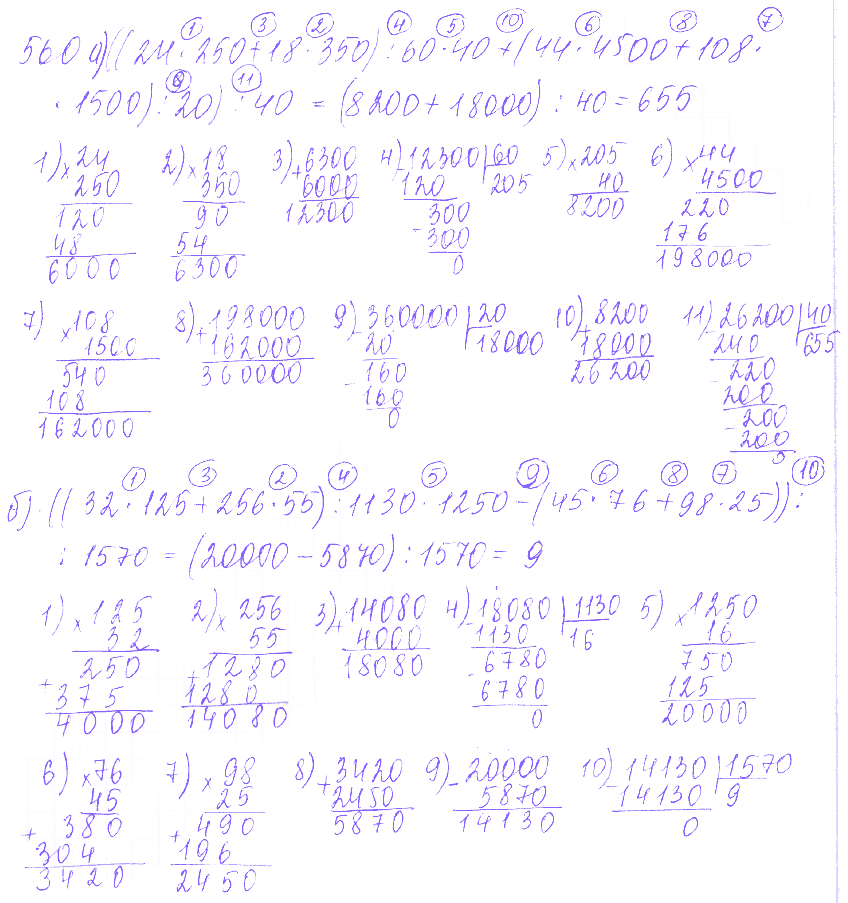 ① ③ ② ④ ⑤ ⑩ ⑥ ⑧ ⑦
560 а) ((24 · 250 + 18 · 350) : 60 · 40 + (44 · 4500 + 108 ·
⑨ ⑪
· 1500) : 20) : 40 = (8200 + 18000) : 40 = 655
1) × 24 2) × 18 3) + 6300 4) - 12300 | 60 5) × 205 6) × 44
250 350 6000 120 205 40 4500
120 90 12300 300 8200 220
48 54 - 300 176
6000 6300 0 198000
7) × 108 8) + 198000 9) - 360000 | 20 10) + 8200 11) - 26200 | 40
1500 162000 20 18000 18000 240 655
540 360000 - 160 26200 - 220
108 160 200
162000 0 - 200
200
0
① ③ ② ④ ⑤ ⑨ ⑥ ⑧ ⑦ ⑩
б) ((32 · 125 + 256 · 55) : 1130 · 1250 - (45 · 76 + 98 · 25)) :
: 1570 = (20000 - 5870) : 1570 = 9
1) × 125 2) × 256 3) + 14080 4) - 18080 | 1130 5) × 1250
32 55 4000 1130 16 16
250 + 1280 18080 - 6780 750
+ 375 1280 6780 125
4000 14080 0 20000
6) × 76 7) × 98 8) + 3420 9) - 20000 10) - 14130 | 1570
45 25 2450 5870 14130 9
+ 380 + 490 5870 14130 0
304 196
3420 2450